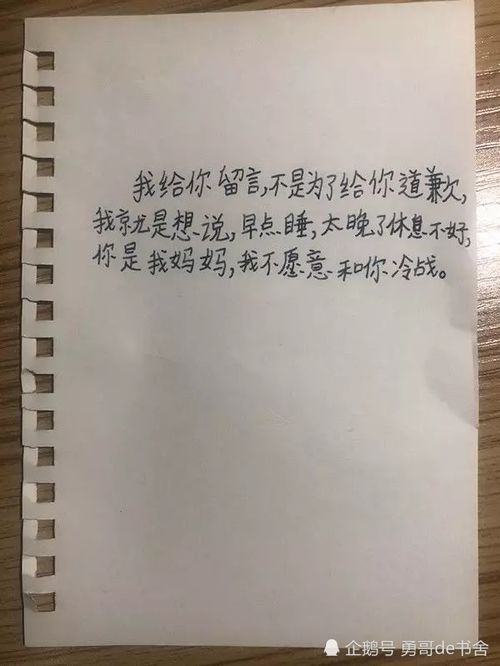 我给你留言,不是为了给你道歉,
我就是想说,早点睡,太晚了休息不好,
你是我妈妈,我不愿意和你冷战。
企鹅号 勇哥de书舍